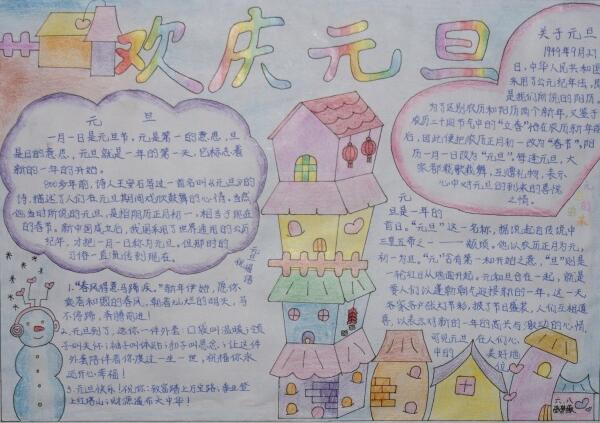 欢庆元旦
元 旦
一月一日是元旦节。元是第一的意思，旦
是日的意思，元旦就是一年的第一天，它标志着
新的一年的开始。
800多年前，诗人王安石写过一首名叫《元旦》的诗
描述了人们在元旦期间欢欣鼓舞的心情，当然
他当时所说的元旦，是指阴历正月初一，相当于现在
的春节，新中国成立后，我国采用了世界通用的公历
纪年，才把一月一日称为元旦。但那时的
习俗一直流传到现在。
元旦祝福语
1."春风得意马蹄疾。"新年伊始，愿你
乘着和煦的春风，朝着灿烂的明天，马
不停蹄，奔腾前进！
2.元旦到了，送你一件外套：口袋叫温暖；领
子叫关怀；袖子叫体贴；扣子叫思念；让这件
外套陪伴着你度过一生一世，祝福你永
远开心幸福！
3.元旦快乐！祝你：致富踏上万宝路，事业登
上红塔山；财源遍布大中华！
关于元旦
1949年9月27
日，中华人民共和国
采用了公元纪年法，即
是我们所说的阳历。
为了区别农历和阳历两个新年，又鉴于
农历二十四节气中的"立春"恰在农历新年前
后，因此便把农历正月初一改为"春节"，阳
历一月一日改为"元旦"。每逢元旦，大
家都载歌载舞，互赠礼物，表示
心中对元旦的到来的喜悦
之情。
元
旦是一年的
首日。"元旦"这一名称，据说起自传说中
三皇五帝之一——颛顼，他以农历正月为元，
初一为旦。"元"含有第一和开始之意，"旦"则是
一轮红日从地面升起，元和旦合在一起，就是
要人们以蓬勃朝气迎接新的一年。这一天，
各家各户张灯节彩，披了节日盛装，人们互相道
喜，以表示对新的一年的高兴与激动的心情，
可见元旦在人们心
中的美好地
位。
六、八